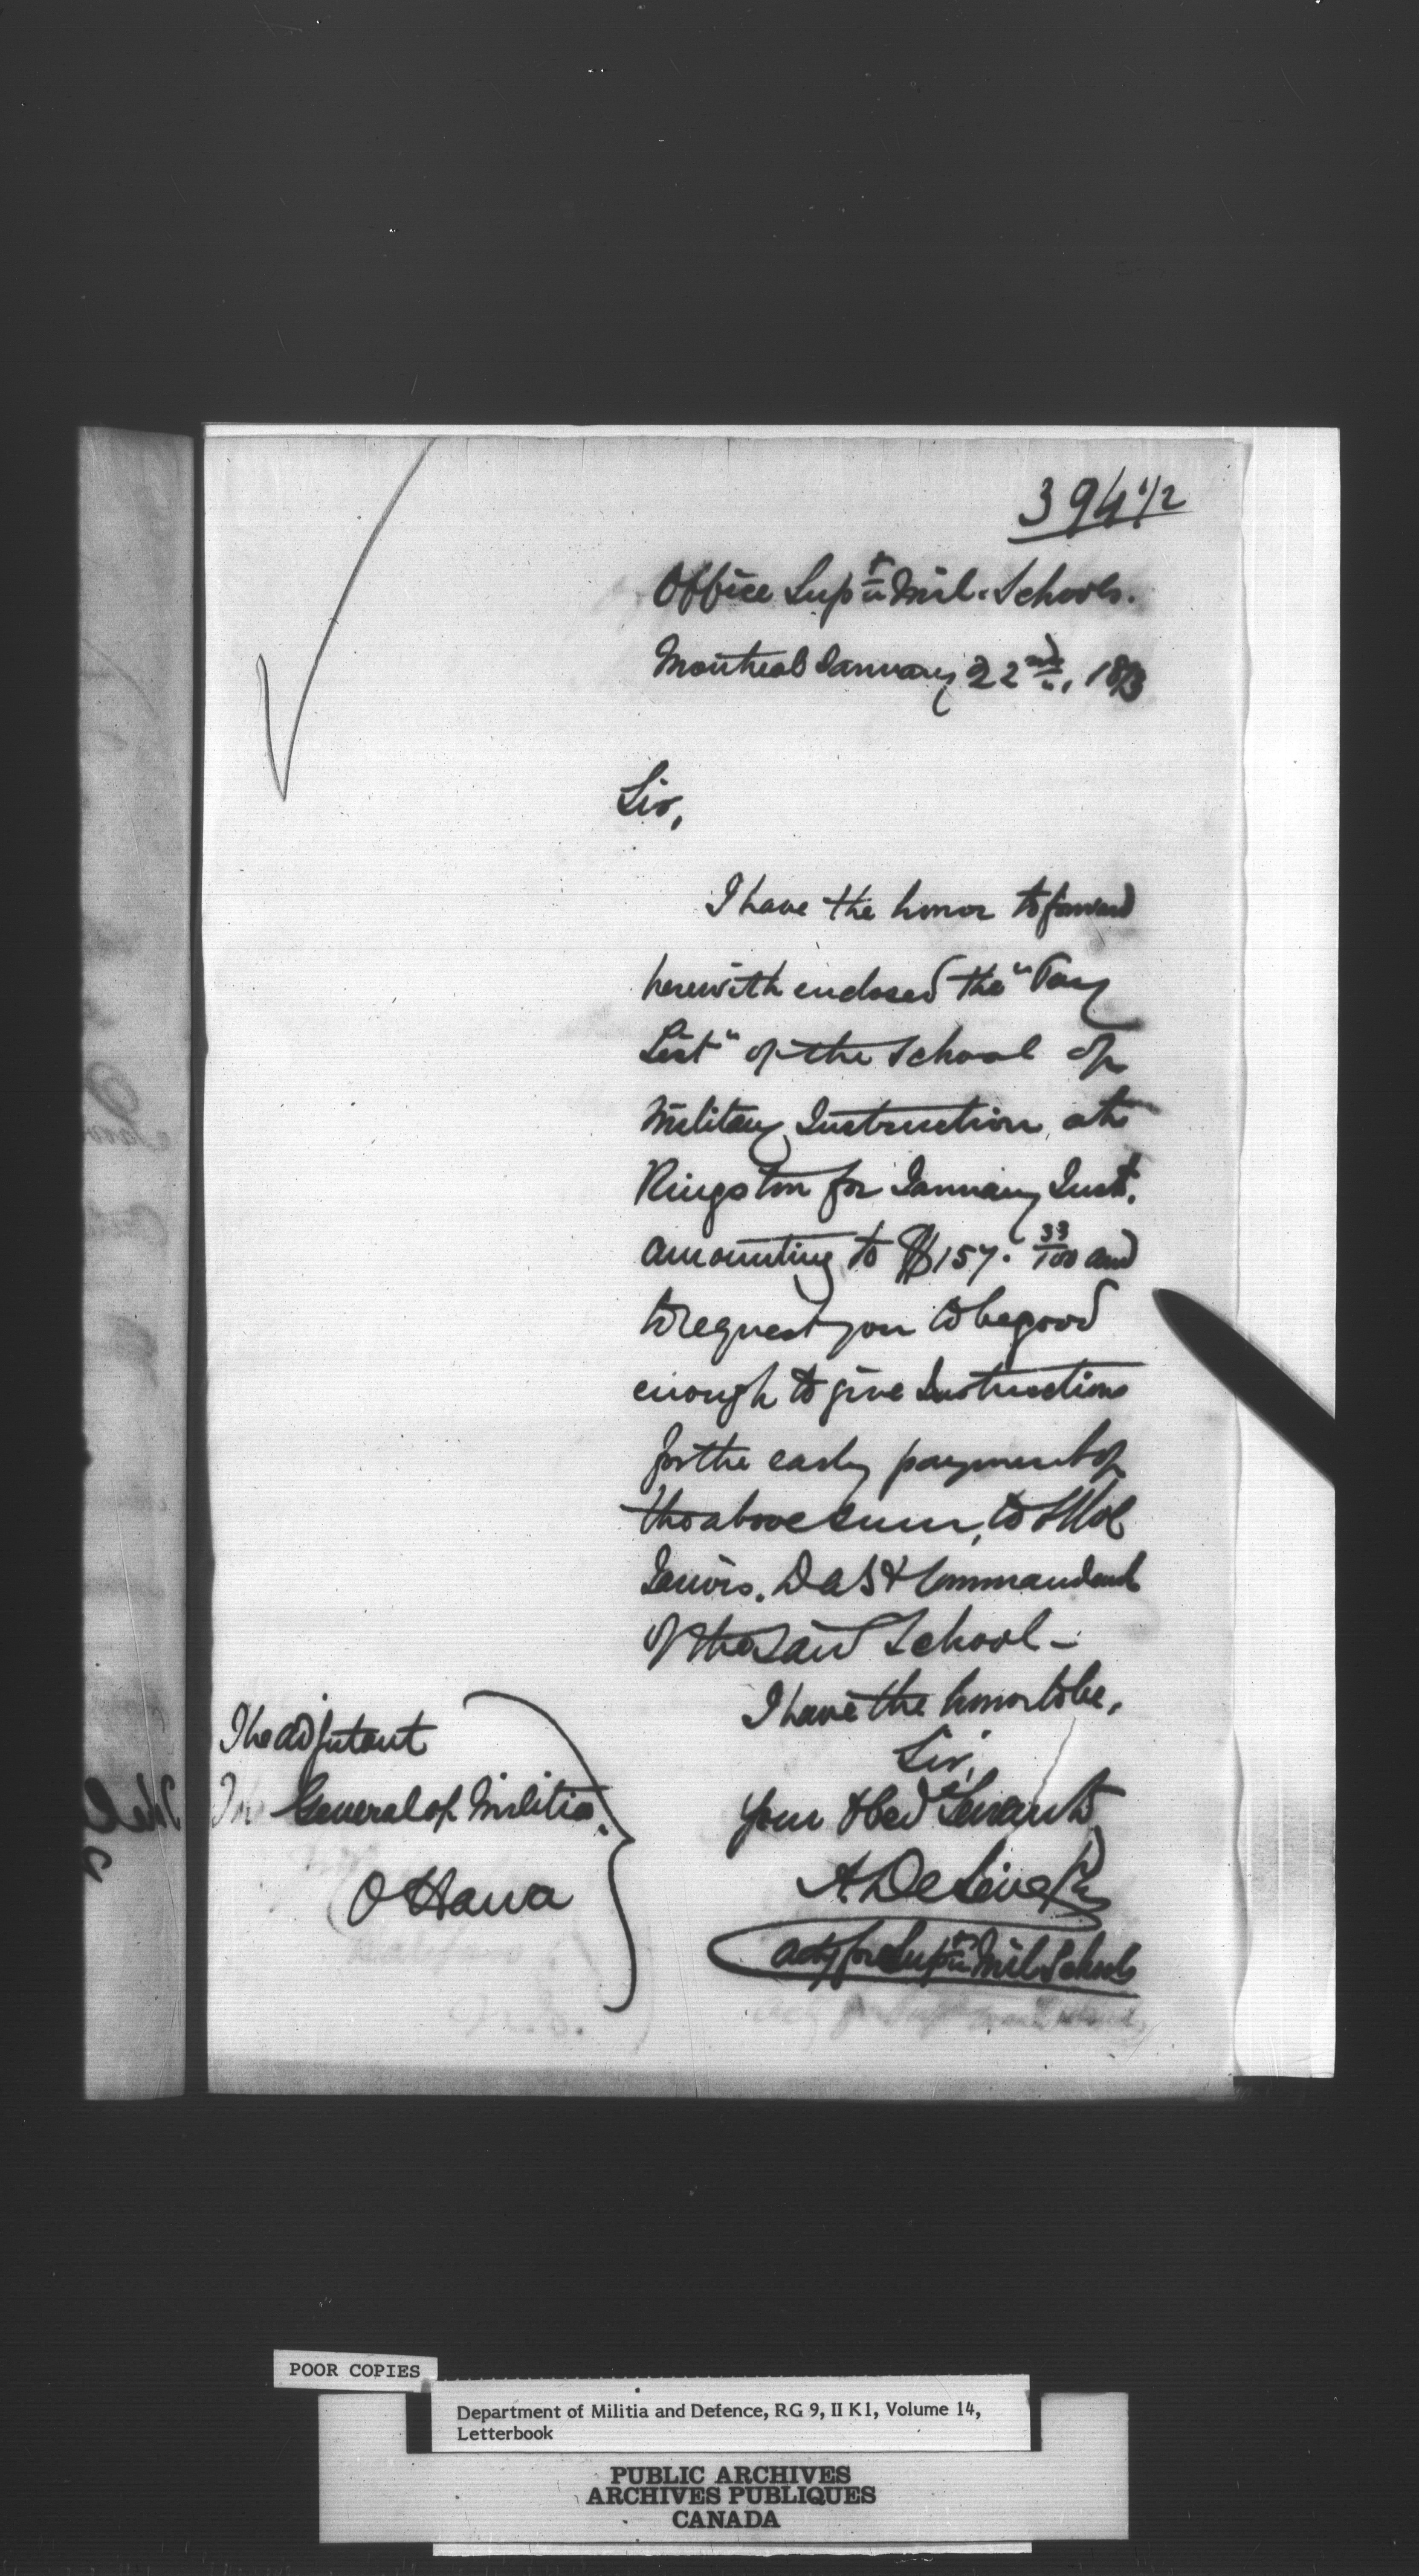 394 1/2
Office Supt Mil. Schools.
Montreal January 22nd, 1873
Sir,
I have the honor to forward
herewith enclosed the "Pay
List" of the School of
Military Instruction, at
Kingston for January Inst.
amounting to $157. 33/100 and
to request you to be good
enough to give Instructions
for the early payment of
the above sum, to Lt Col
Jarvis. DAG & Commandant
of the said School -
I have the honor to be,
Sir,
Your Obed Servant
A. De
actg for Supt Mil Schools
The Adjutant
General of Militia.
Ottawa
POOR COPIES
Department of Militia and Defence, RG 9, II K1, Volume 14,
Letterbook
PUBLIC ARCHIVES
ARCHIVES PUBLIQUES
CANADA